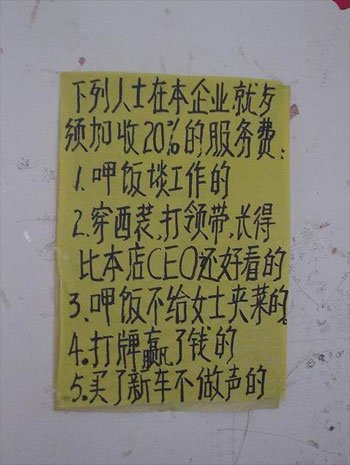 下列人士在本企业就歺
须加收20%的服务费:
1.呷饭谈工作的
2.穿西装、打领带、长得
比本店CEO还好看的
3.呷饭不给女士夹菜的。
4.打牌赢了钱的
5.买了新车不做声的